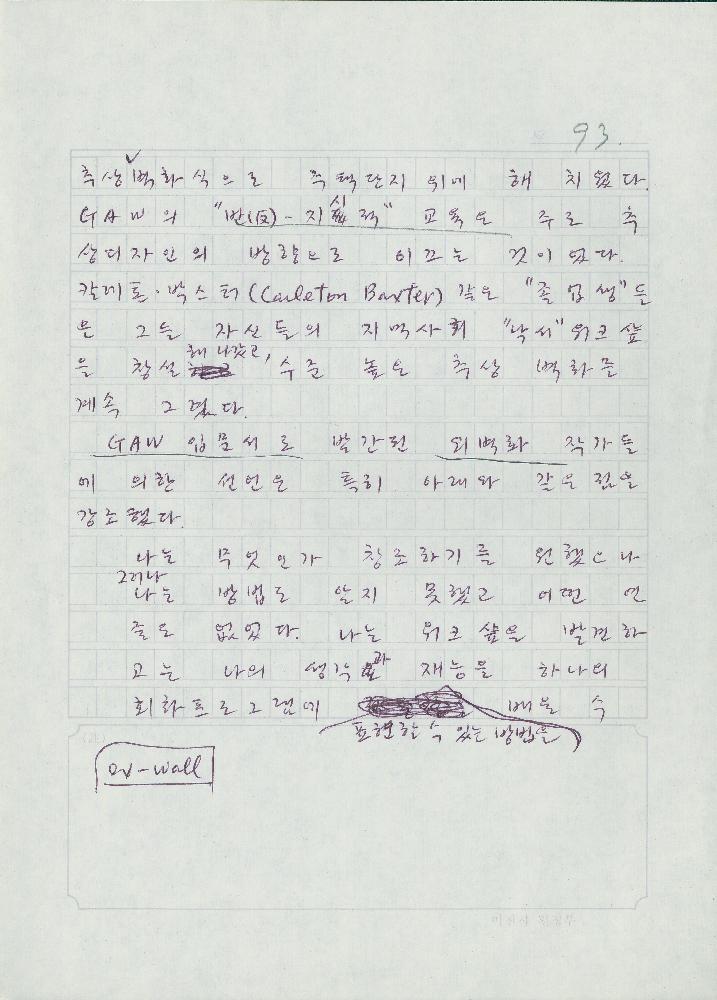 93.
추상벽화식으로 주택단지 위에 해 치웠다.
GAW의 "반(反)-지식적" 교육은 주로 추
상디자인의 방향으로 이끄는 것이었다.
칼레톤·박스터(Carleton Baxter) 같은 "졸업생"들
은 그들 자신들의 지역사회 "낙서"워크샾
을 창설해 나갔고, 수준 높은 추상 벽화를
계속 그렸다.
GAW 입문서로 발간된 외벽화 작가들
에 의한 선언은 특히 아래와 같은 점을
강조했다.
나는 무엇인가 창조하기를 원했으나
그러나
나는 방법도 알지 못했고 어떤 연
줄도 없었다. 나는 워크샾을 발견하
고는 나의 생각과 재능을 하나의
회화프로그램에 배울 수
표현할 수 있는 방법을
ov-wall